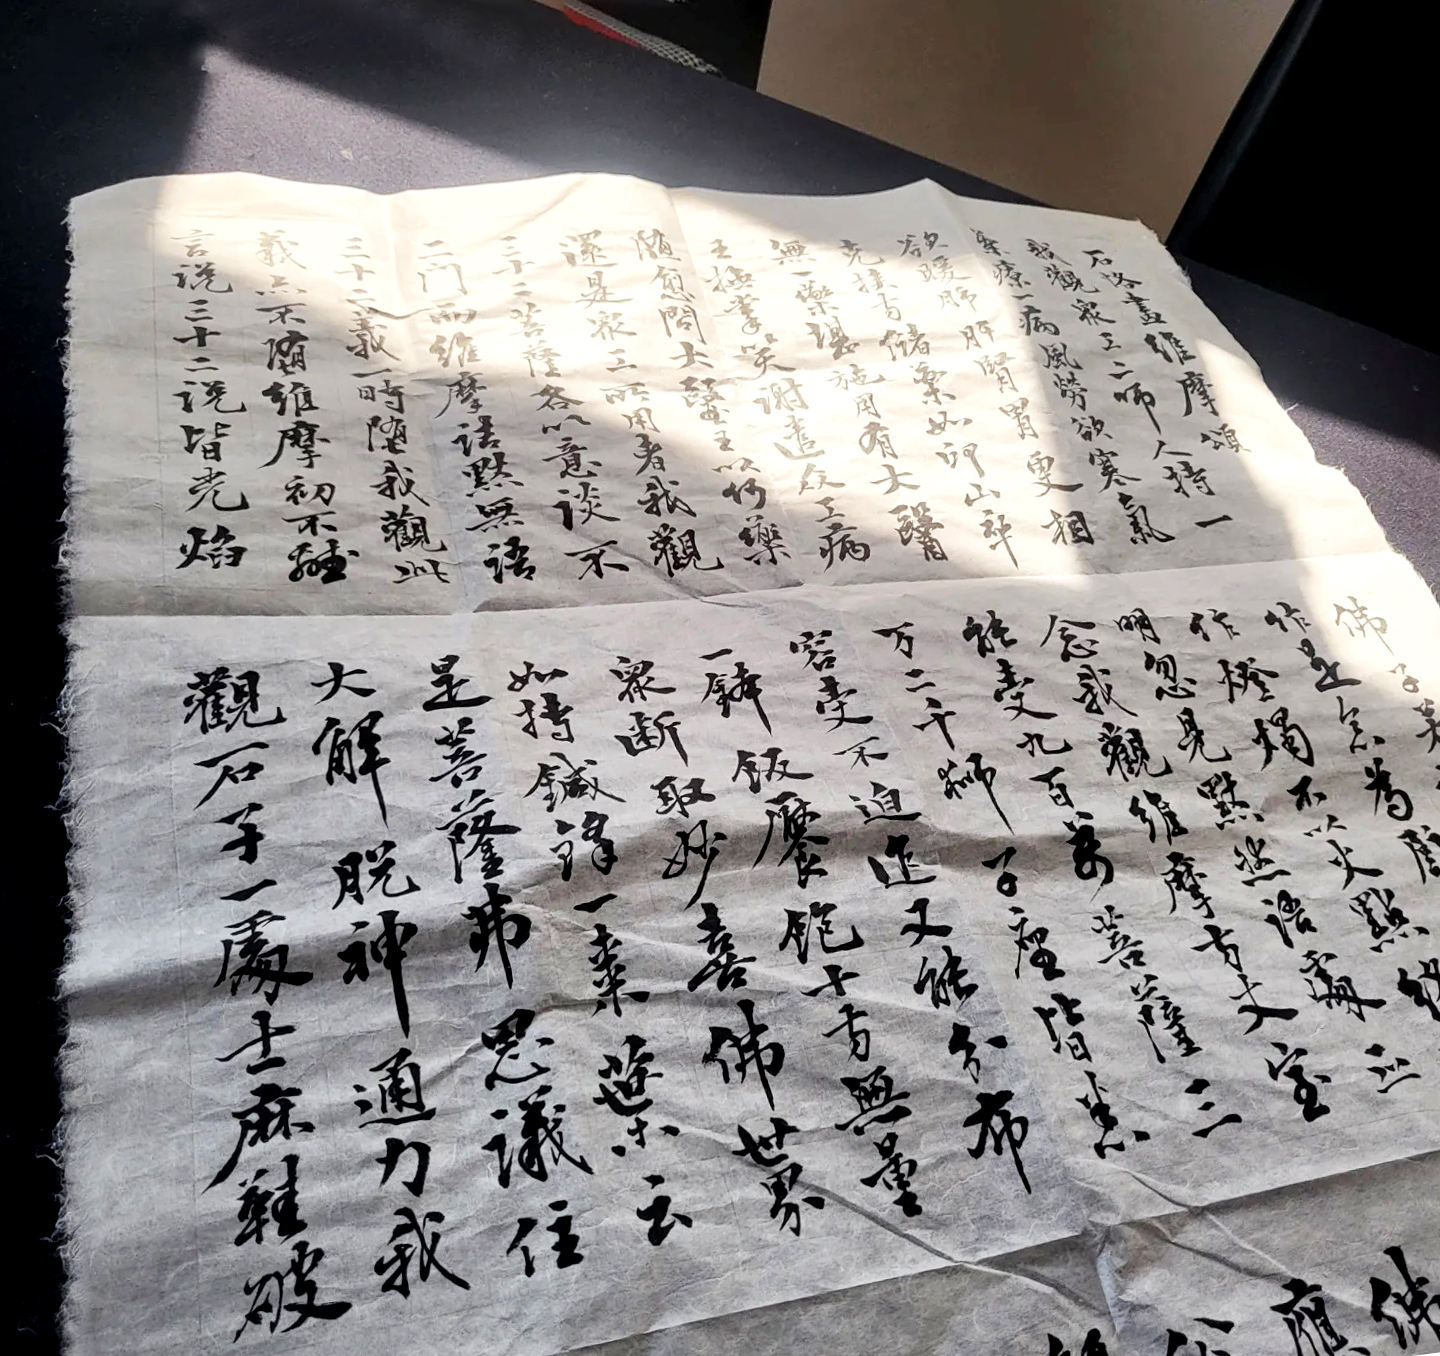 石恪畫維摩頌
我觀衆工二師人持一
藥療一病風勞欲寒氣
欲暖肺肝腎胃更相
克挾方儲藥如邱山卒
無一藥堪施用有大醫
王撫掌笑謝遣众工病
随愈問大醫王以何藥
還是衆工所用者我觀
三十二菩薩各以意談不
二門而維摩詰默無語
三十二義一時墮我觀此
義亦不墮維摩初不離
言説三十二説皆光焰
佛子若
作是念為
作燈燭不以火點終
明忽見默然語處正
念我觀維摩方丈室
能受九百萬菩薩三
万二千獅子座皆悉
容受不迫迮又能分布
一鉢飯饜飽十方無量
衆断取妙喜佛世界
如持鍼鋒一棗葉云
是菩薩弗思議住
大解脱神通力我
觀石子一處士麻鞋破
佛
應